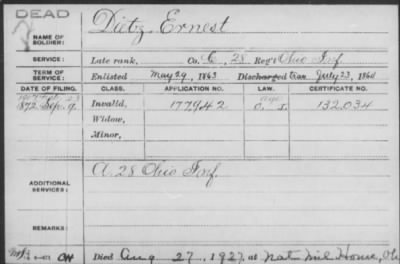 DEAD
NAME OF SOLDIER: Dietz, Ernest
SERVICE: Late rank, Co. C, 28 Reg't Ohio Inf.
TERM OF SERVICE: Enlisted May 29, 1863 Discharged July 23, 1864
DATE OF FILING. CLASS. APPLICATION NO. LAW. CERTIFICATE NO.
1872 Sep. 9. Invalid, 177942 132,034
Widow,
Minor,
ADDITIONAL SERVICES: A. 28 Ohio Inf.
REMARKS:
Died Aug 27, 1927, at Nat Mil Home, Oh